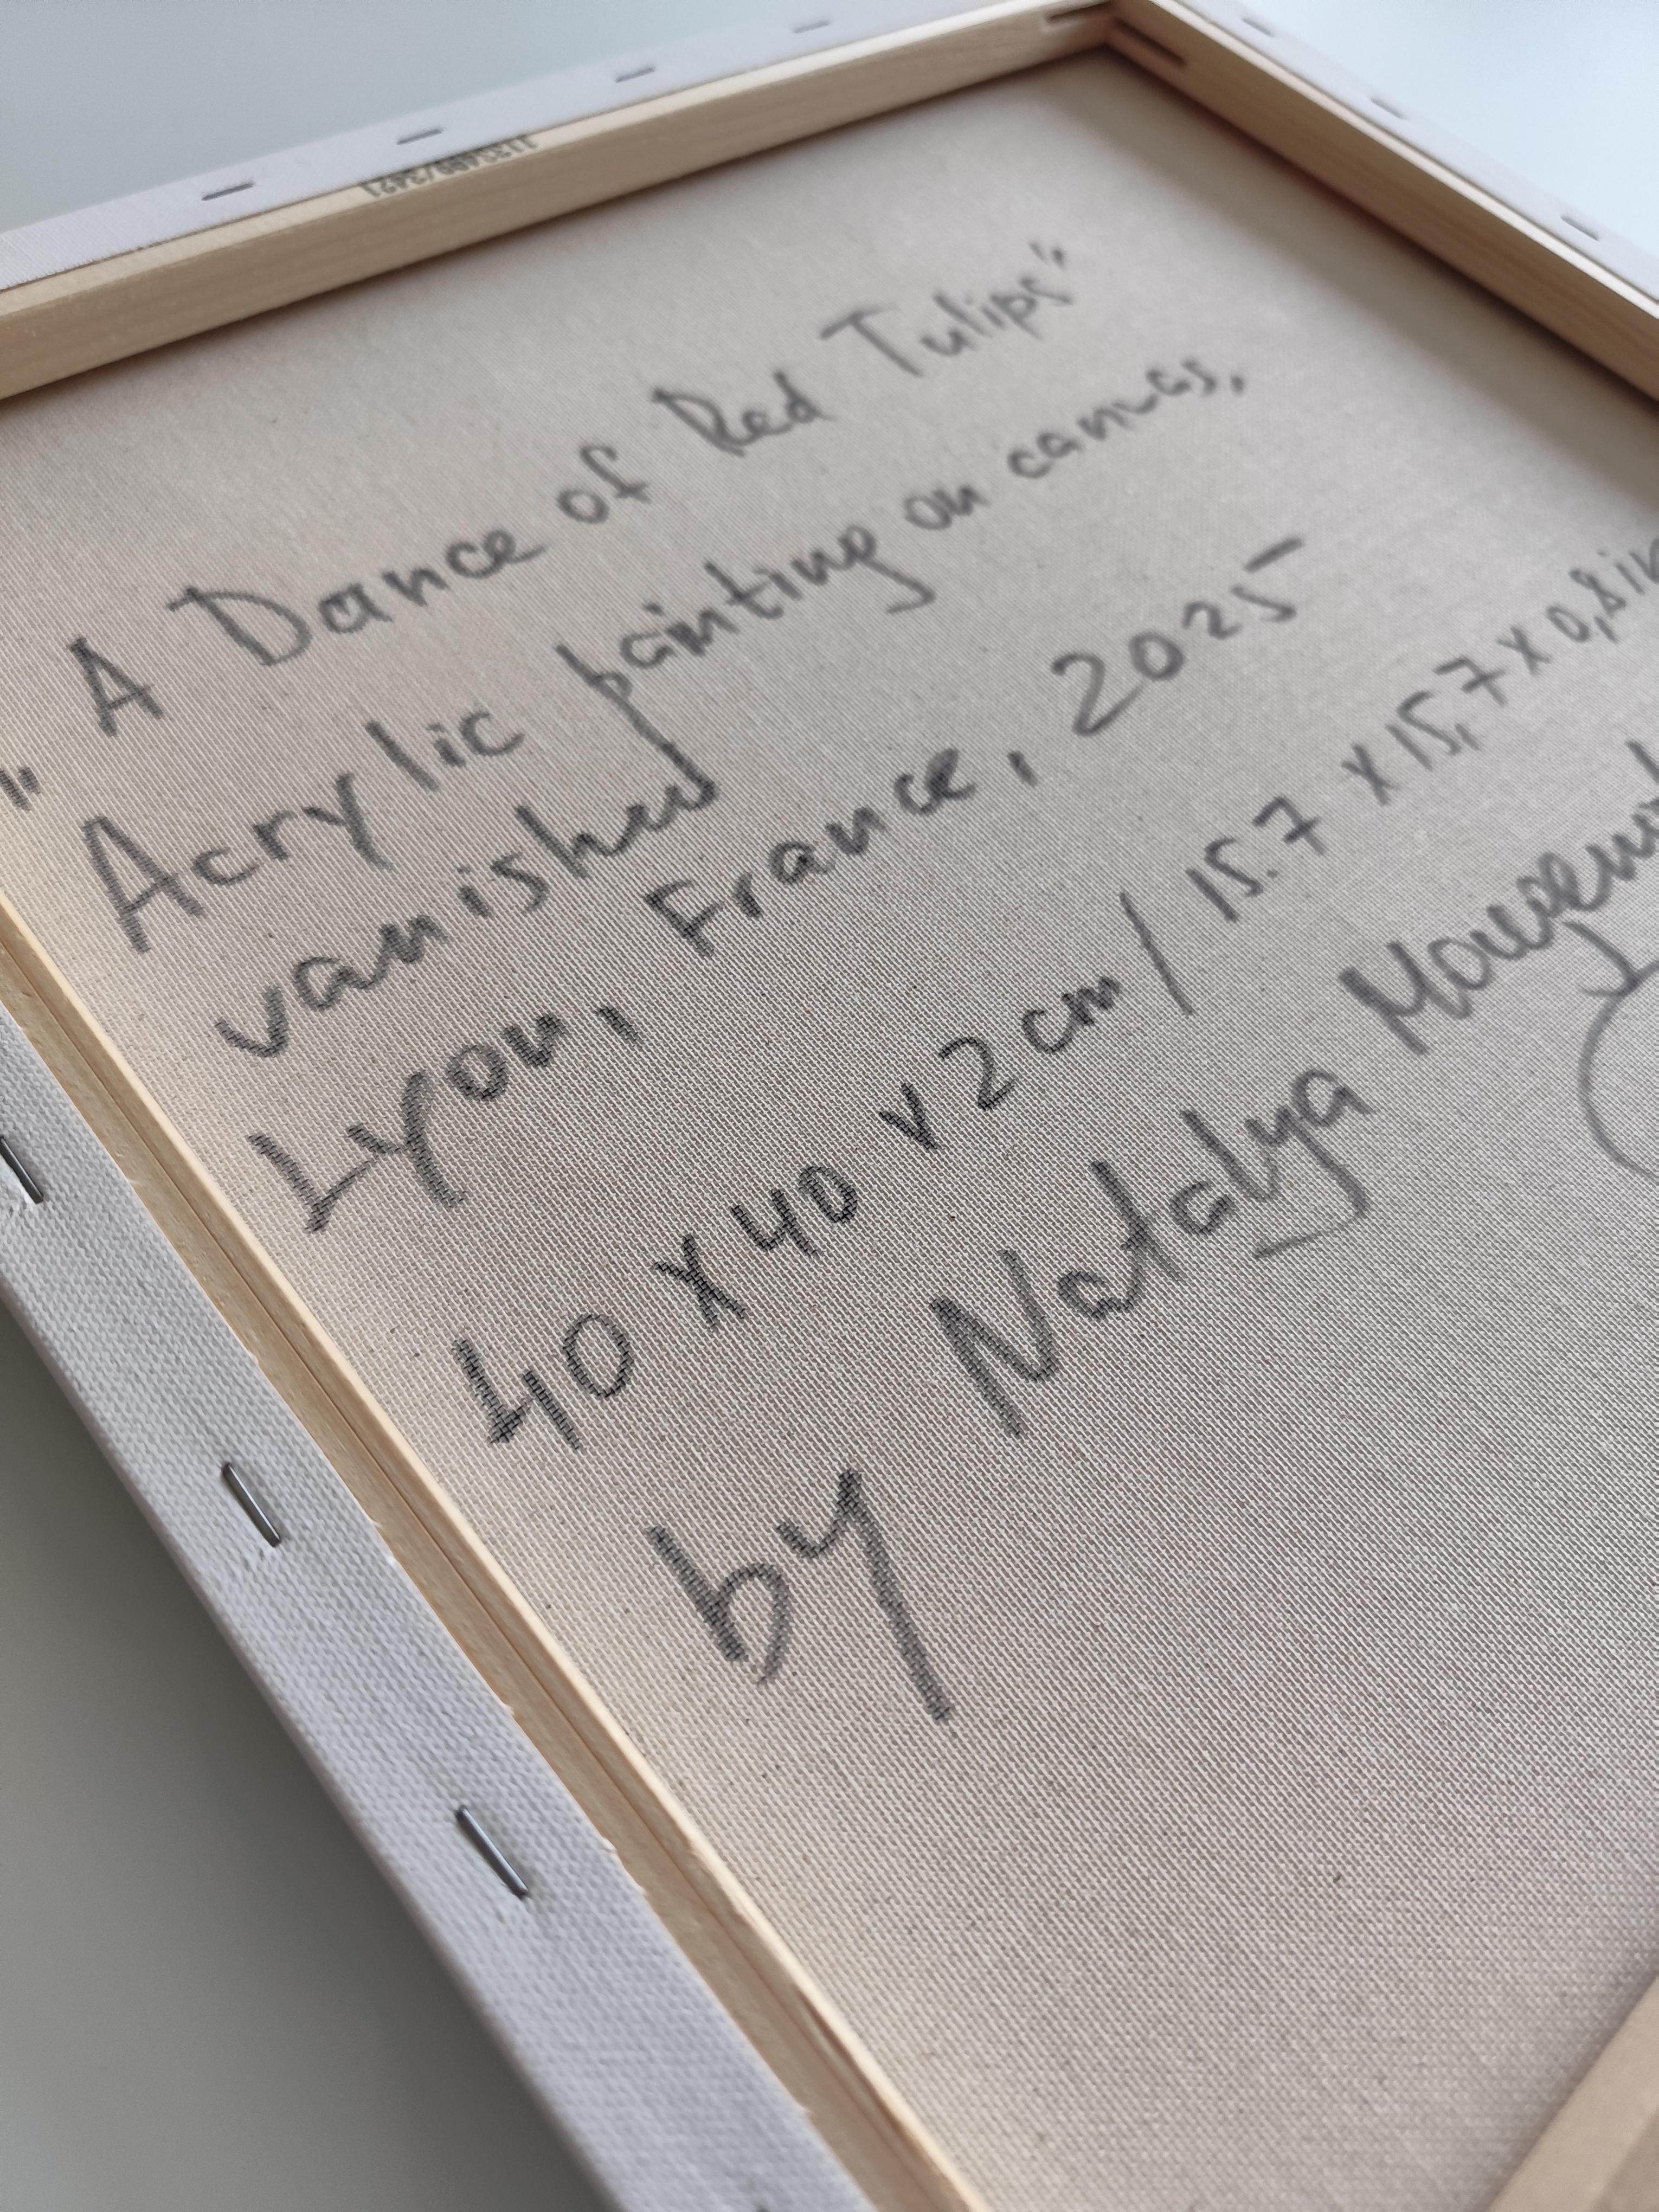 "A Dance of Red Tulips"
Acrylic painting on canvas,
vanished
Lyon, France, 2025
40 x 40 x 2 cm / 15.7 x 15,7 x 0,8 in
by Natalya